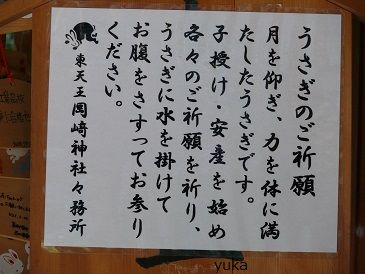 うさぎのご祈願
月を仰ぎ、力を体に満
たしたうさぎです。
子授け・安産を始め
各々のご祈願を祈り、
うさぎに水を掛けて
お腹をさすってお参り
ください。
東天王岡崎神社々務所
yuka